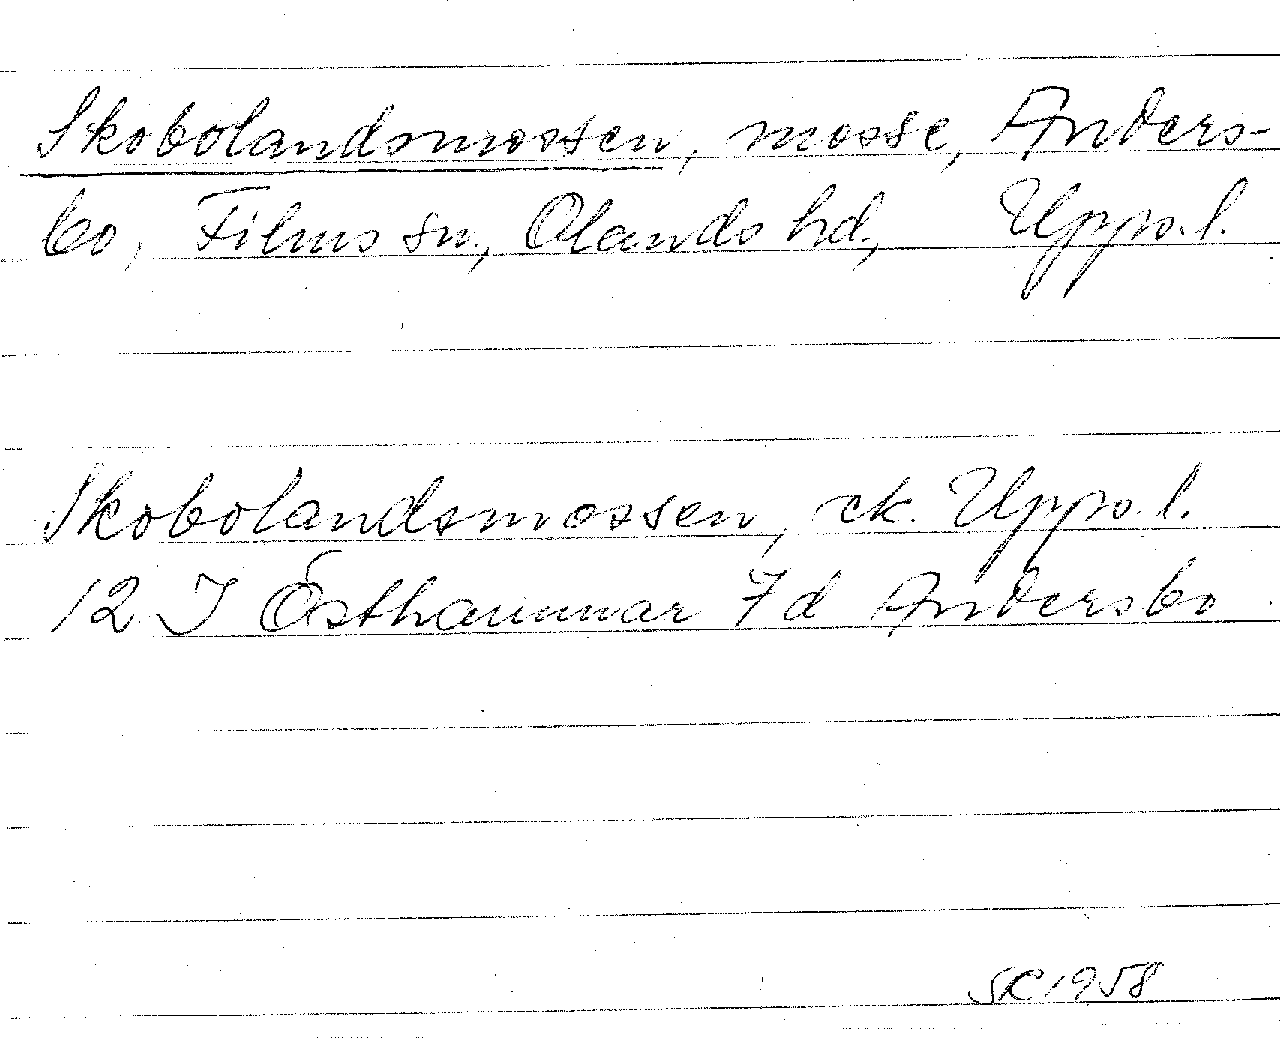 Skobolandsmossen, mosse, Anders-
bo, Films sn., Olands hd., Upps. l.
Skobolandsmossen, ek. Upps. l.
12 I Östhammar 7d Andersbo
SK 1958